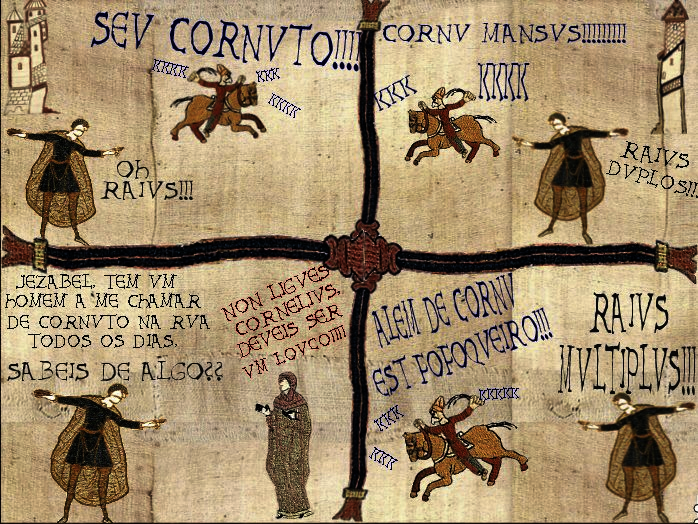 SEV CORNVTO!!!!
KKKK
KKK
KKKK
Oh
RAIVS!!!
CORNV MANSVS!!!!!!!!!
KKK
KKKK
RAIVS
DVPLOS!!!
JEZABEL, TEM VM
HOMEM A ME CHAMAR
DE CORNVTO NA RVA
TODOS OS DIAS.
SABEIS DE ALGO??
NON LIGVES
CORNELIVS,
DEVEIS SER
VM LOVCO!!!!
ALEM DE CORNV
EST FOFOQVEIRO!!!
KKK
KKKKK
KKK
RAIVS
MVLTIPLVS!!!